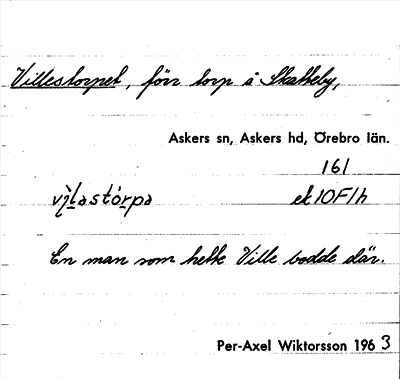 Villestorpet, förr torp å Skatteby,
Askers sn, Askers hd, Örebro län.
161
vìlastórpa ek 10F1h
En man som hette Ville bodde där.
Per-Axel Wiktorsson 1963